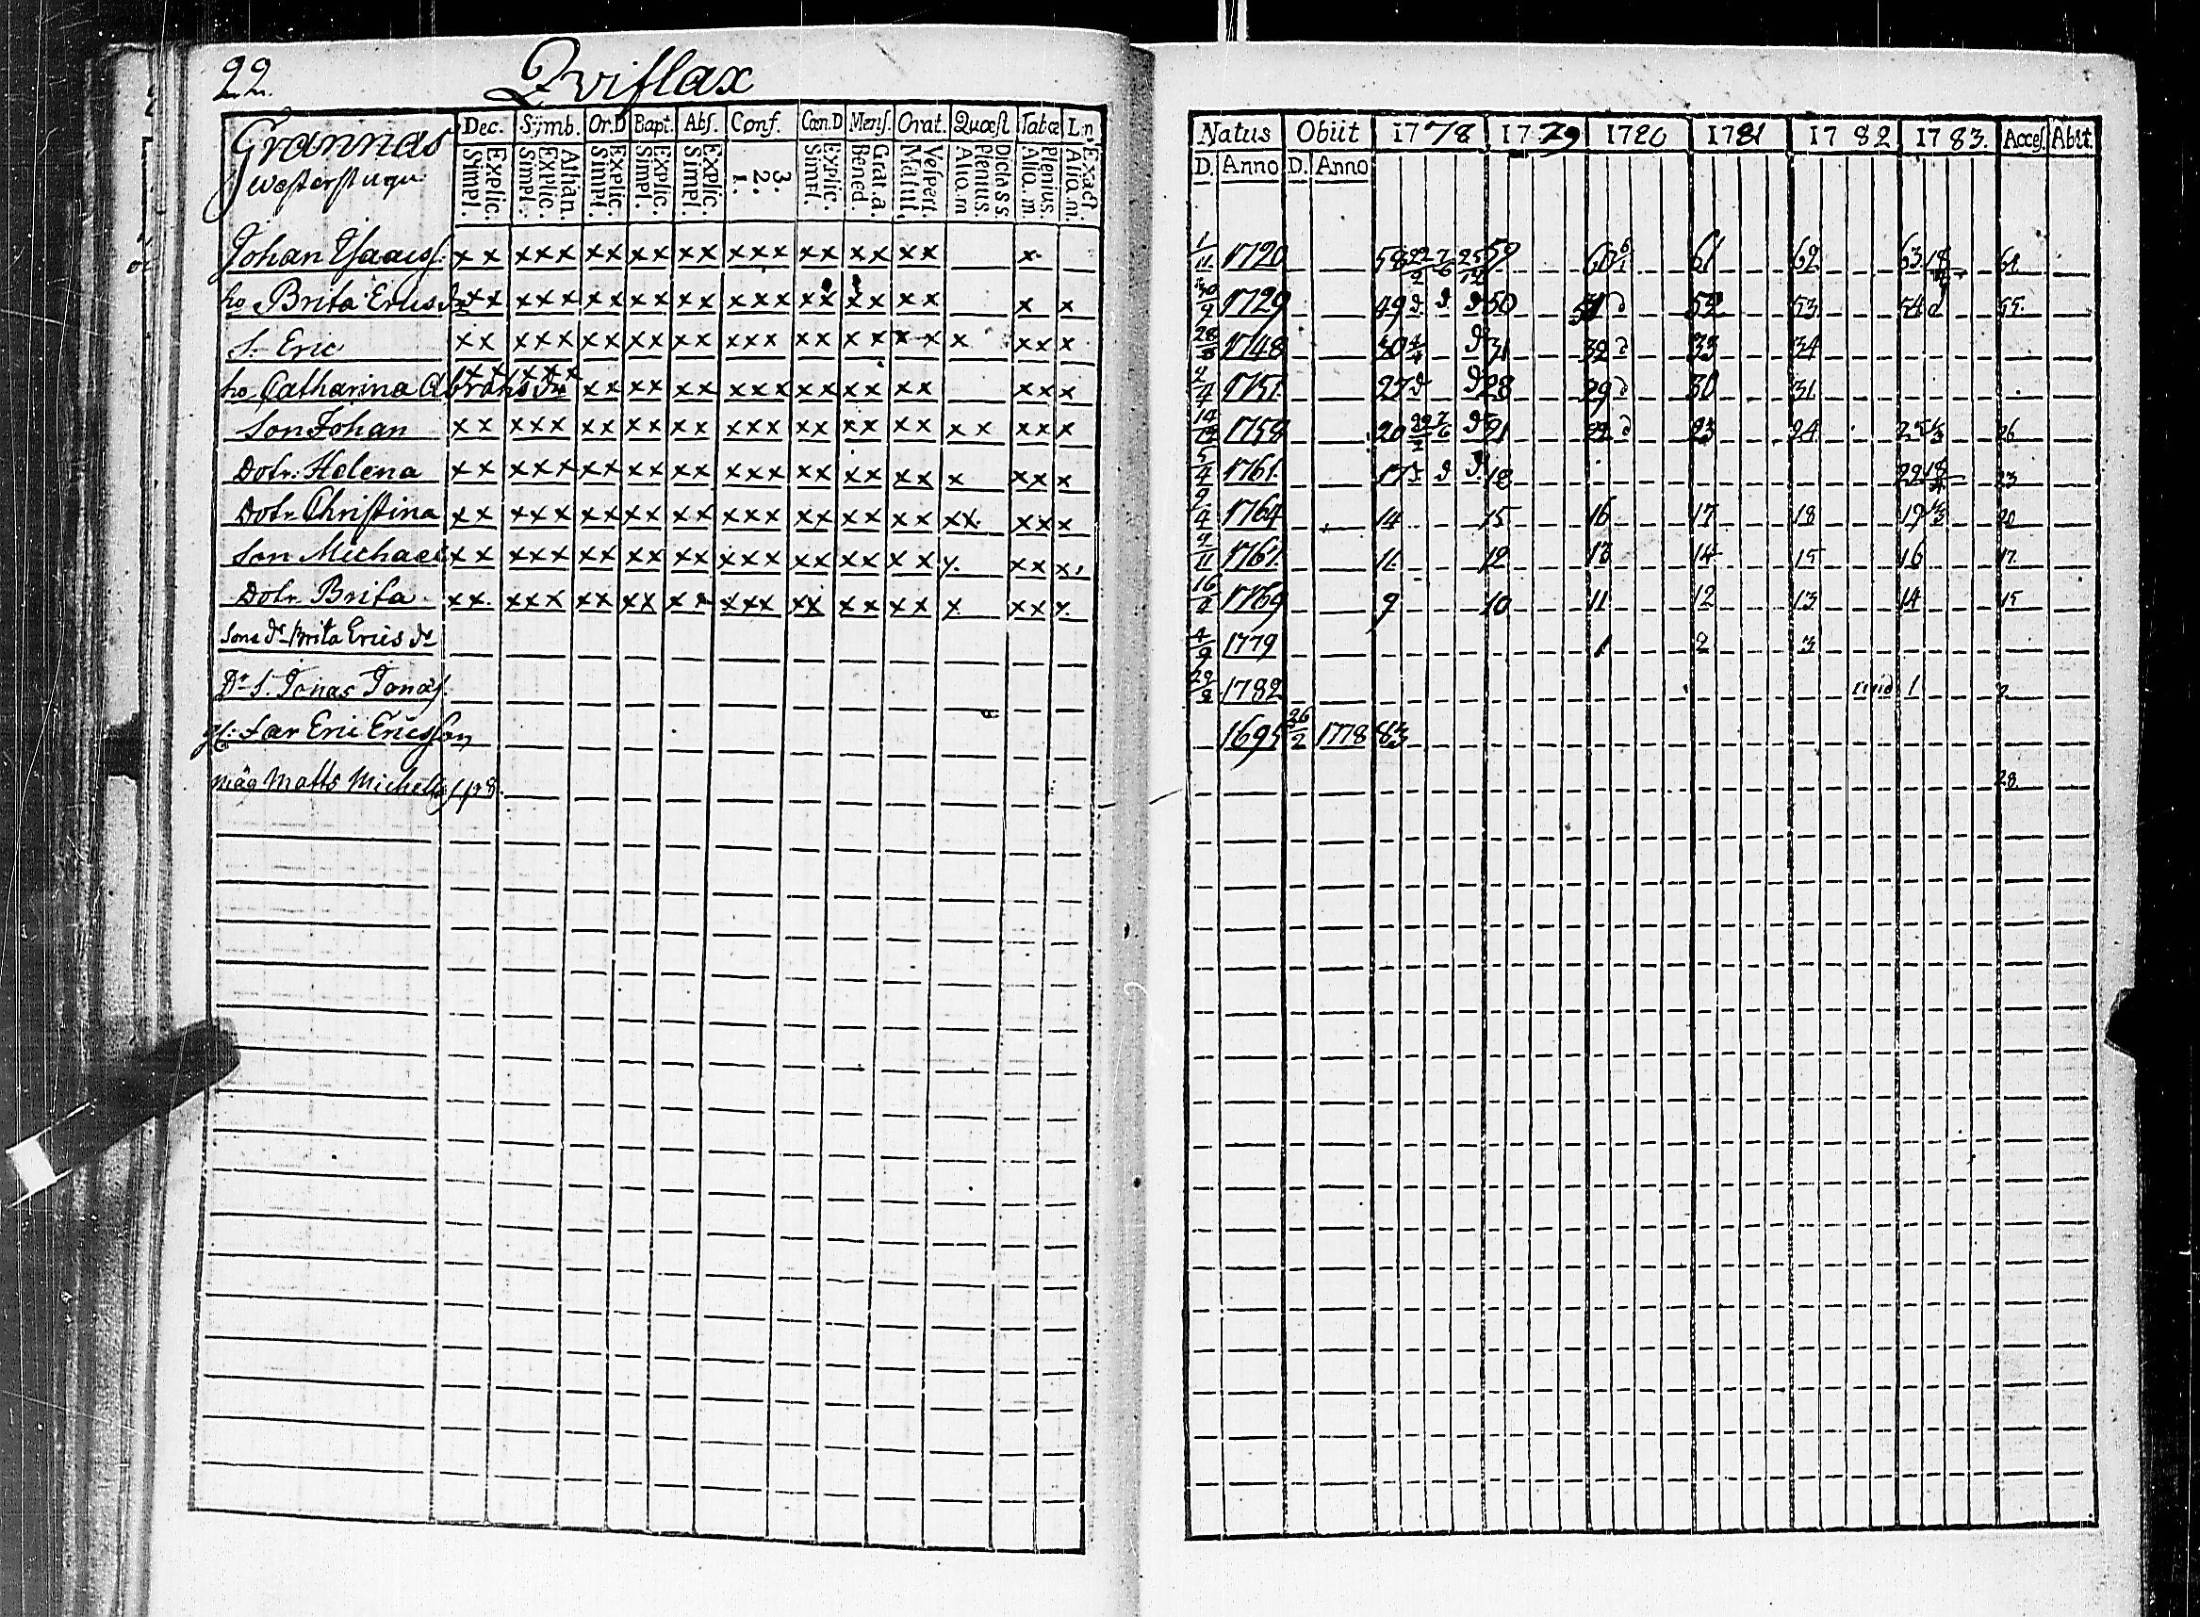 22. Qviflax
Grannas Dec. Sijmb. Or.D Bapt. Abſ. Conf. Cœn.D Menſ. Orat. Quæſt Tabœ L:n
Simpl. Explic. Simpl. Explic. Athan. Simpl. Explic. Simpl. Explic. Simpl. Explic. 1. 2. 3. Simpl. Explic. Bened. Grat.a. Matut. Veſpert. Alio.m Plenius. Dicta s s. Alio.m. Plenius. Alia.m. Exact
Johan Iſaacſ. x x x x x x x x x x x x x x x x x x x x x
ho Brita Ericsdr x x x x x x x x x x x x x x x x x x x x x
S. Eric x x x x x x x x x x x x x x x x x x x x x x x x
ho Catharina Abrahsdr x x x x x x x x x x x x x x x x x x x x x x x
Son Johan x x x x x x x x x x x x x x x x x x x x x x x x x
Dotr. Helena x x x x x x x x x x x x x x x x x x x x x x x x
Dotr Christina x x x x x x x x x x x x x x x x x x x x x x x x x
Son Michael x x x x x x x x x x x x x x x x x x x x x x x x
Dotr Brita x x x x x x x x x x x x x x x x x x x x x x x x
Sons dr Brita Erics dr
Dr S. Jonas Jonaſ.
gl: Far Eric Ericsſon
Måg Matts Michelsſ
Natus Obiit 1778 1779 1780 1781 1782 1783. Acceſ. Abit.
D. Anno D. Anno
1/11 1720 58 22/2 7/6 25/12 59 60 61 62 63 18/
1729 49 d d d 50 51 d 52 53 54 d 55.
28/ 1748 30 d 31 32 d 33 34
1751. 27 d d 28 29 d 30 31
14/ 1758 20 22/2 7/6 d 21 22 d 23 24 25 26
5/4 1761. 17 d d 18 22 18/ 23
1764 14 15 16 17 18 19 20
1767. 11 12 13 14 15 16 17.
16/ 1769 9 10 11 12 13 14 15
4/9 1779 1 2 3
29/ 1782 1 2
1695 26/2 1778 83
28.